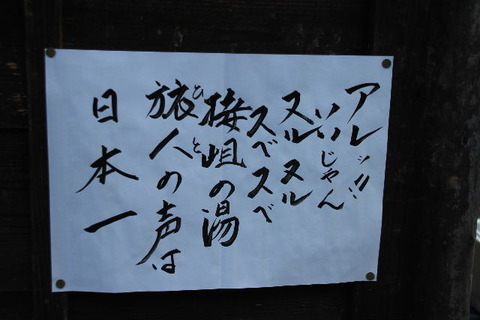 アレッ!!
いいじゃん
ヌルヌル
スベスベ
椄岨の湯
旅人の声は
ひと
日本一